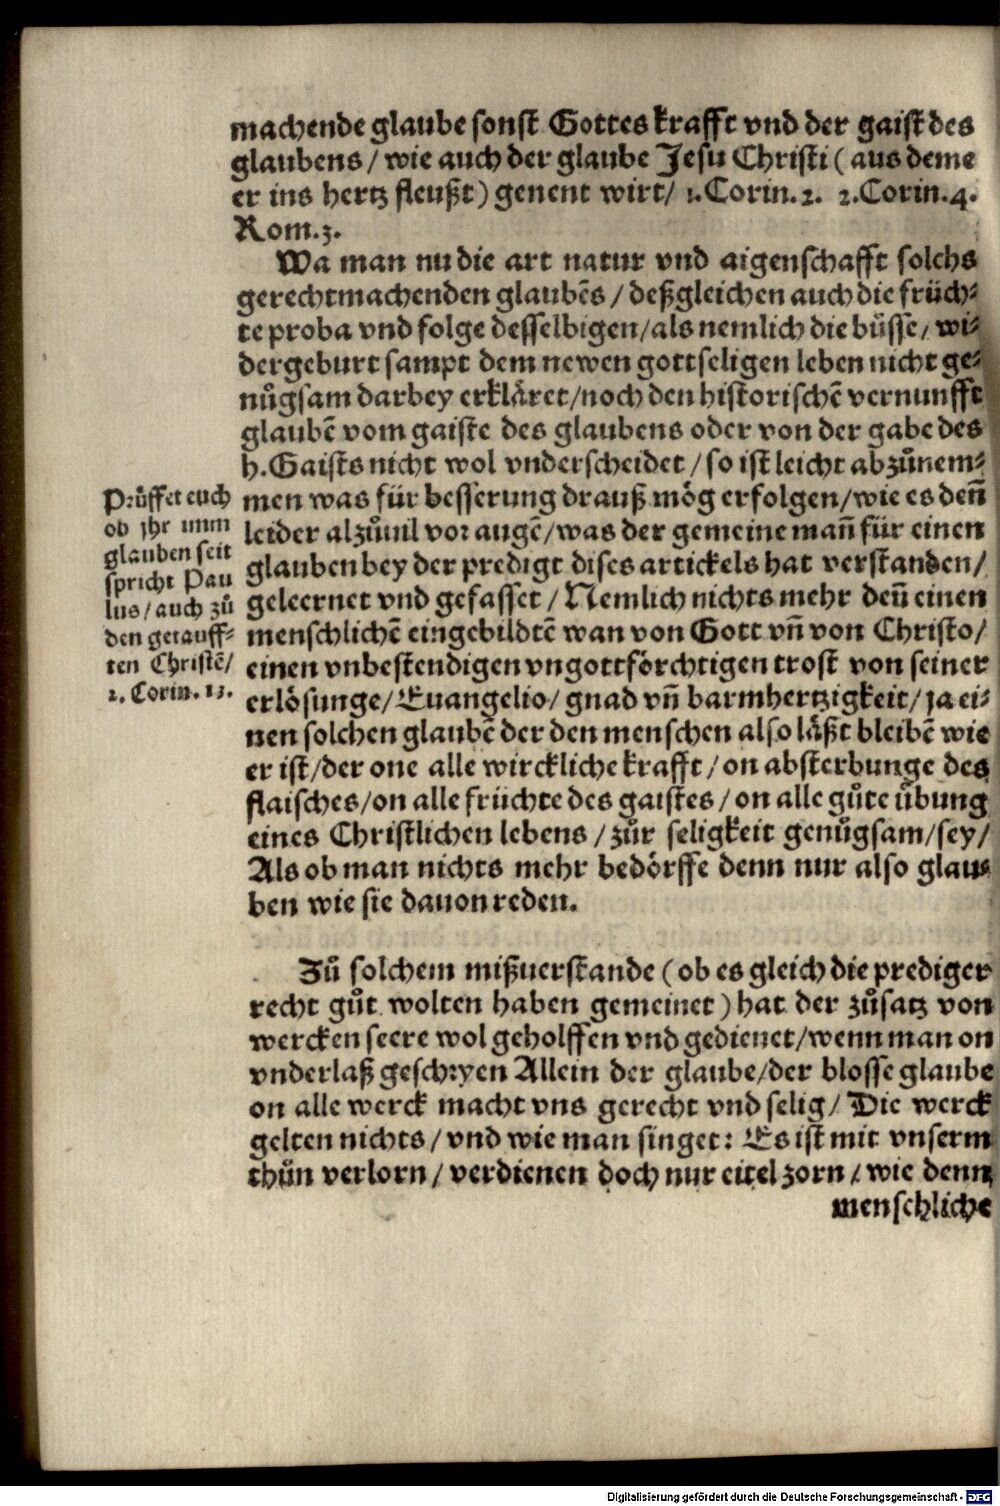 machende glaube sonst Gottes krafft vnd der gaist des
glaubens / wie auch der glaube Jesu Christi ( aus deme
er ins hertz fleußt ) genent wirt / 1. Corin. 2. 2. Corin. 4.
Rom. 3.
Wa man nu die art natur vnd aigenschafft solchs
gerechtmachenden glaubẽs / deßgleichen auch die früch⸗
te proba vnd folge desselbigen / als nemlich die bůsse / wi⸗
dergeburt sampt dem newen gottseligen leben nicht ge⸗
nůgsam darbey erkläret / noch den historischẽ vernunfft
glaubẽ vom gaiste des glaubens oder von der gabe des
h. Gaists nicht wol vnderscheidet / so ist leicht abzůnem⸗
men was für besserung drauß mög erfolgen / wie es deñ
leider alzůuil vor augẽ / was der gemeine mañ für einen
glauben bey der predigt dises artickels hat verstanden /
geleernet vnd gefasset / Nemlich nichts mehr deñ einen
menschlichẽ eingebildtẽ wan von Gott vñ von Christo /
einen vnbestendigen vngottförchtigen trost von seiner
erlösunge / Euangelio / gnad vñ barmhertzigkeit / ja ei⸗
nen solchen glaubẽ der den menschen also läßt bleibẽ wie
er ist / der one alle wirckliche krafft / on absterbunge des
flaisches / on alle früchte des gaistes / on alle gůte übung
eines Christlichen lebens / zůr seligkeit genůgsam / sey /
Als ob man nichts mehr bedörffe denn nur also glau⸗
ben wie sie dauon reden.
Průffet euch
ob jhr imm
glauben seit
spricht Pau
lus / auch zů
den getauff⸗
ten Christẽ /
2. Corin. 13.
Zů solchem mißuerstande ( ob es gleich die prediger
recht gůt wolten haben gemeinet ) hat der zůsatz von
wercken seere wol geholffen vnd gedienet / wenn man on
vnderlaß geschryen Allein der glaube / der blosse glaube
on alle werck macht vns gerecht vnd selig / Die werck
gelten nichts / vnd wie man singet : Es ist mit vnserm
thůn verlorn / verdienen doch nur eitel zorn / wie denn
menschliche
Digitalisierung gefördert durch die Deutsche Forschungsgemeinschaft - DFG